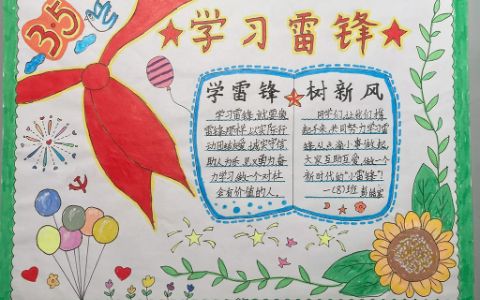 3·5
学习雷锋
学雷锋
树新风
学习雷锋,就要像
雷锋那样,以实际行
动团结友爱,诚实守信
助人为乐,更要为奋
力学习,做一个对社
会有价值的人。
同学们,让我们携
起手来,共同努力学习雷
锋,从点滴小事做起,
大家互助互爱,做一个
新时代的“小雷锋”!
一(8)班